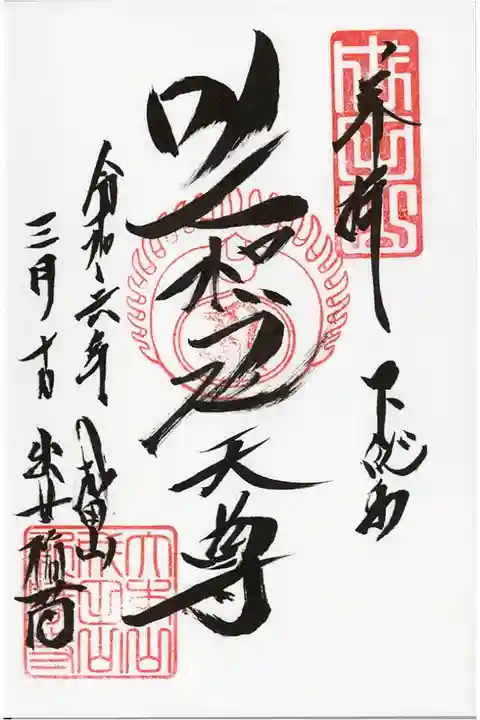 奉拝
下総
吒枳尼天尊
令和六年
三月十日
成田山
出世稲荷
成田山